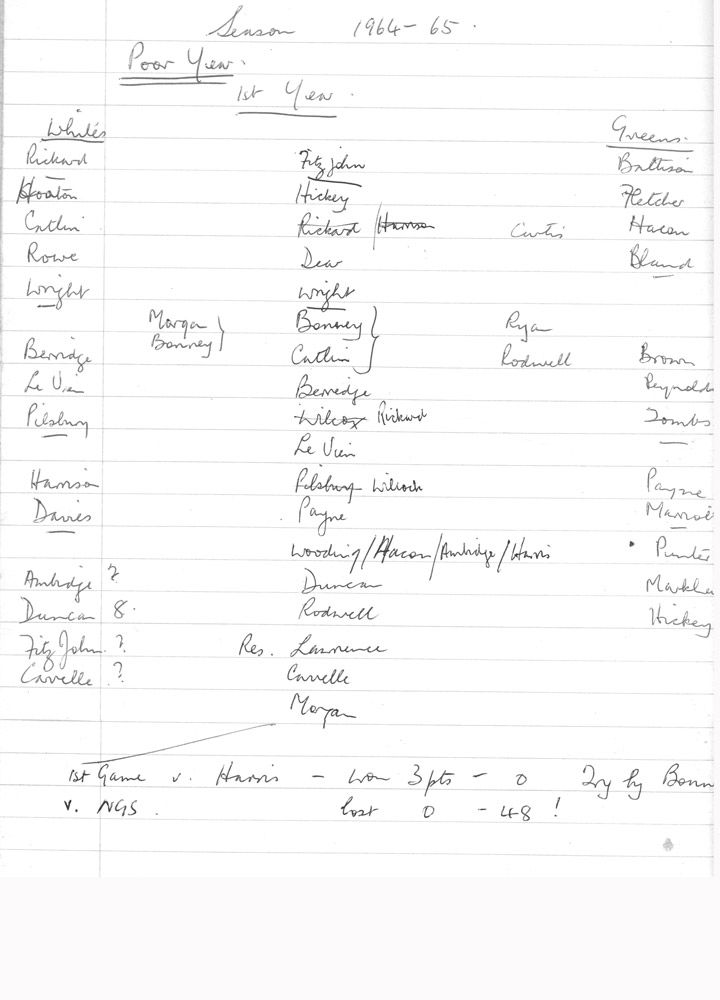 Season 1964-65.
Poor Year.
1st Year.
Whites Greens.
Rickard Fitzjohn Battison
Hooton Hickey Fletcher
Catlin Rickard / Harrison Curtis Hacon
Rowe Dear Bland
Wright Wright
Morgan Bonney Ryan
Bonney
Berridge Catlin Rodwell Brown
Le Vien Berredge Reynolds
Pilsbury Wilcox Rickard Tombs
Le Vien
Harrison Pilsbury Wilcock Payne
Davies Payne
Wooding / Hacon / Ambridge / Harris Punter
Ambridge ? Duncan
Duncan 8. Rodwell Hickey
Fitz John. ? Res. Lawrence
Carvelle ? Carvelle
Morgan
1st Game v. Harris - won 3pts - 0 Try by Bonn
v. NGS. lost 0 - 48 !